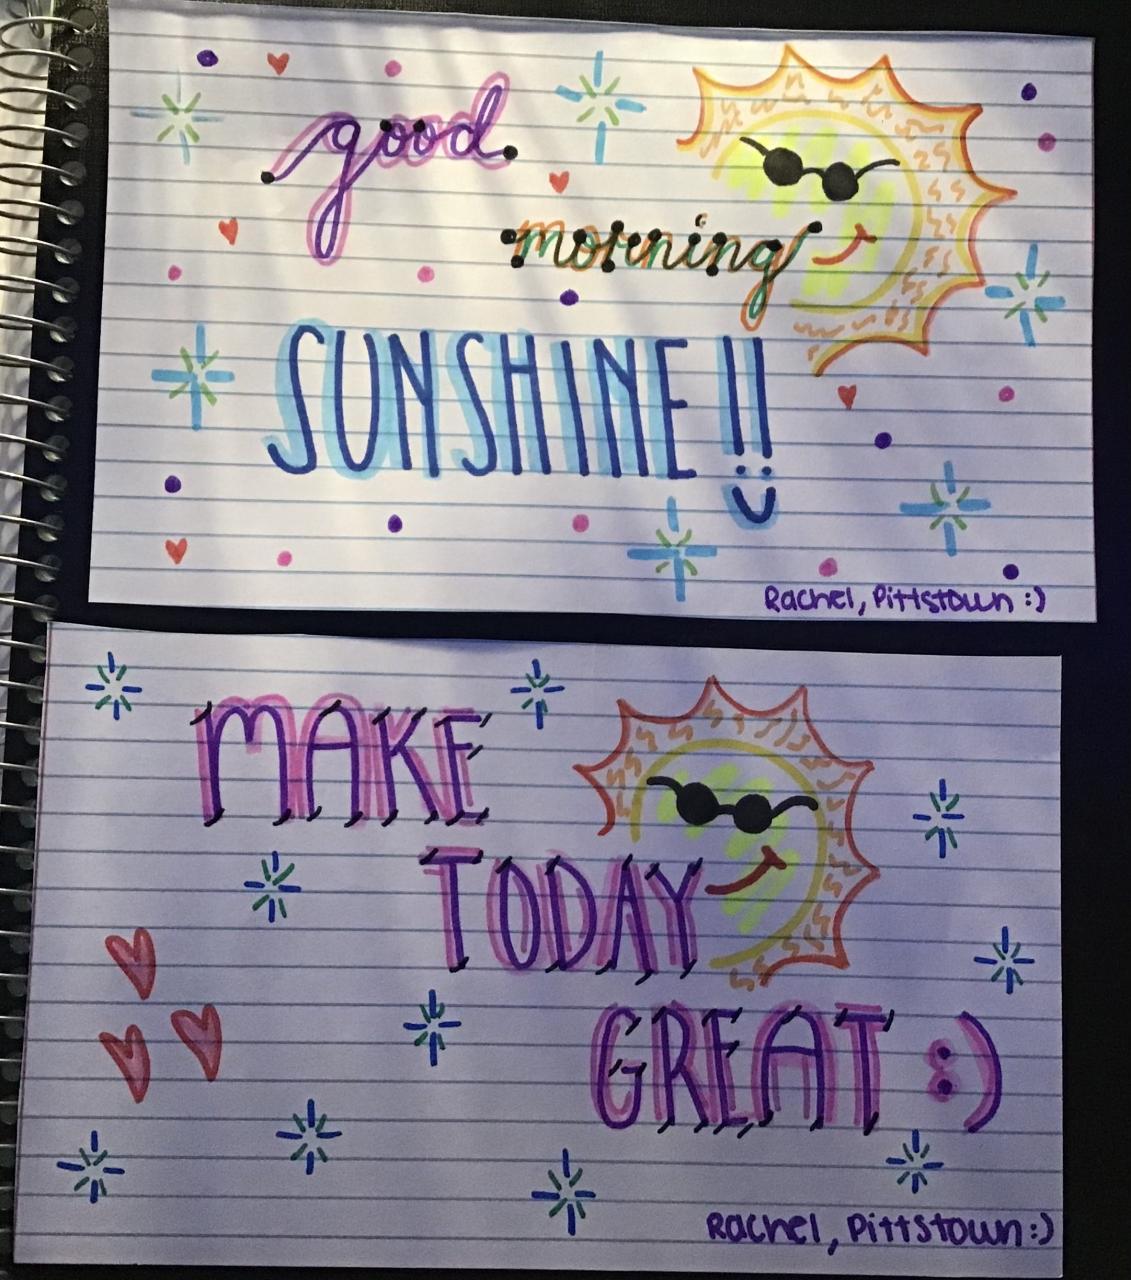 good
morning
SUNSHINE!!
Rachel, Pittstown :)
MAKE
TODAY
GREAT :)
Rachel, Pittstown :)